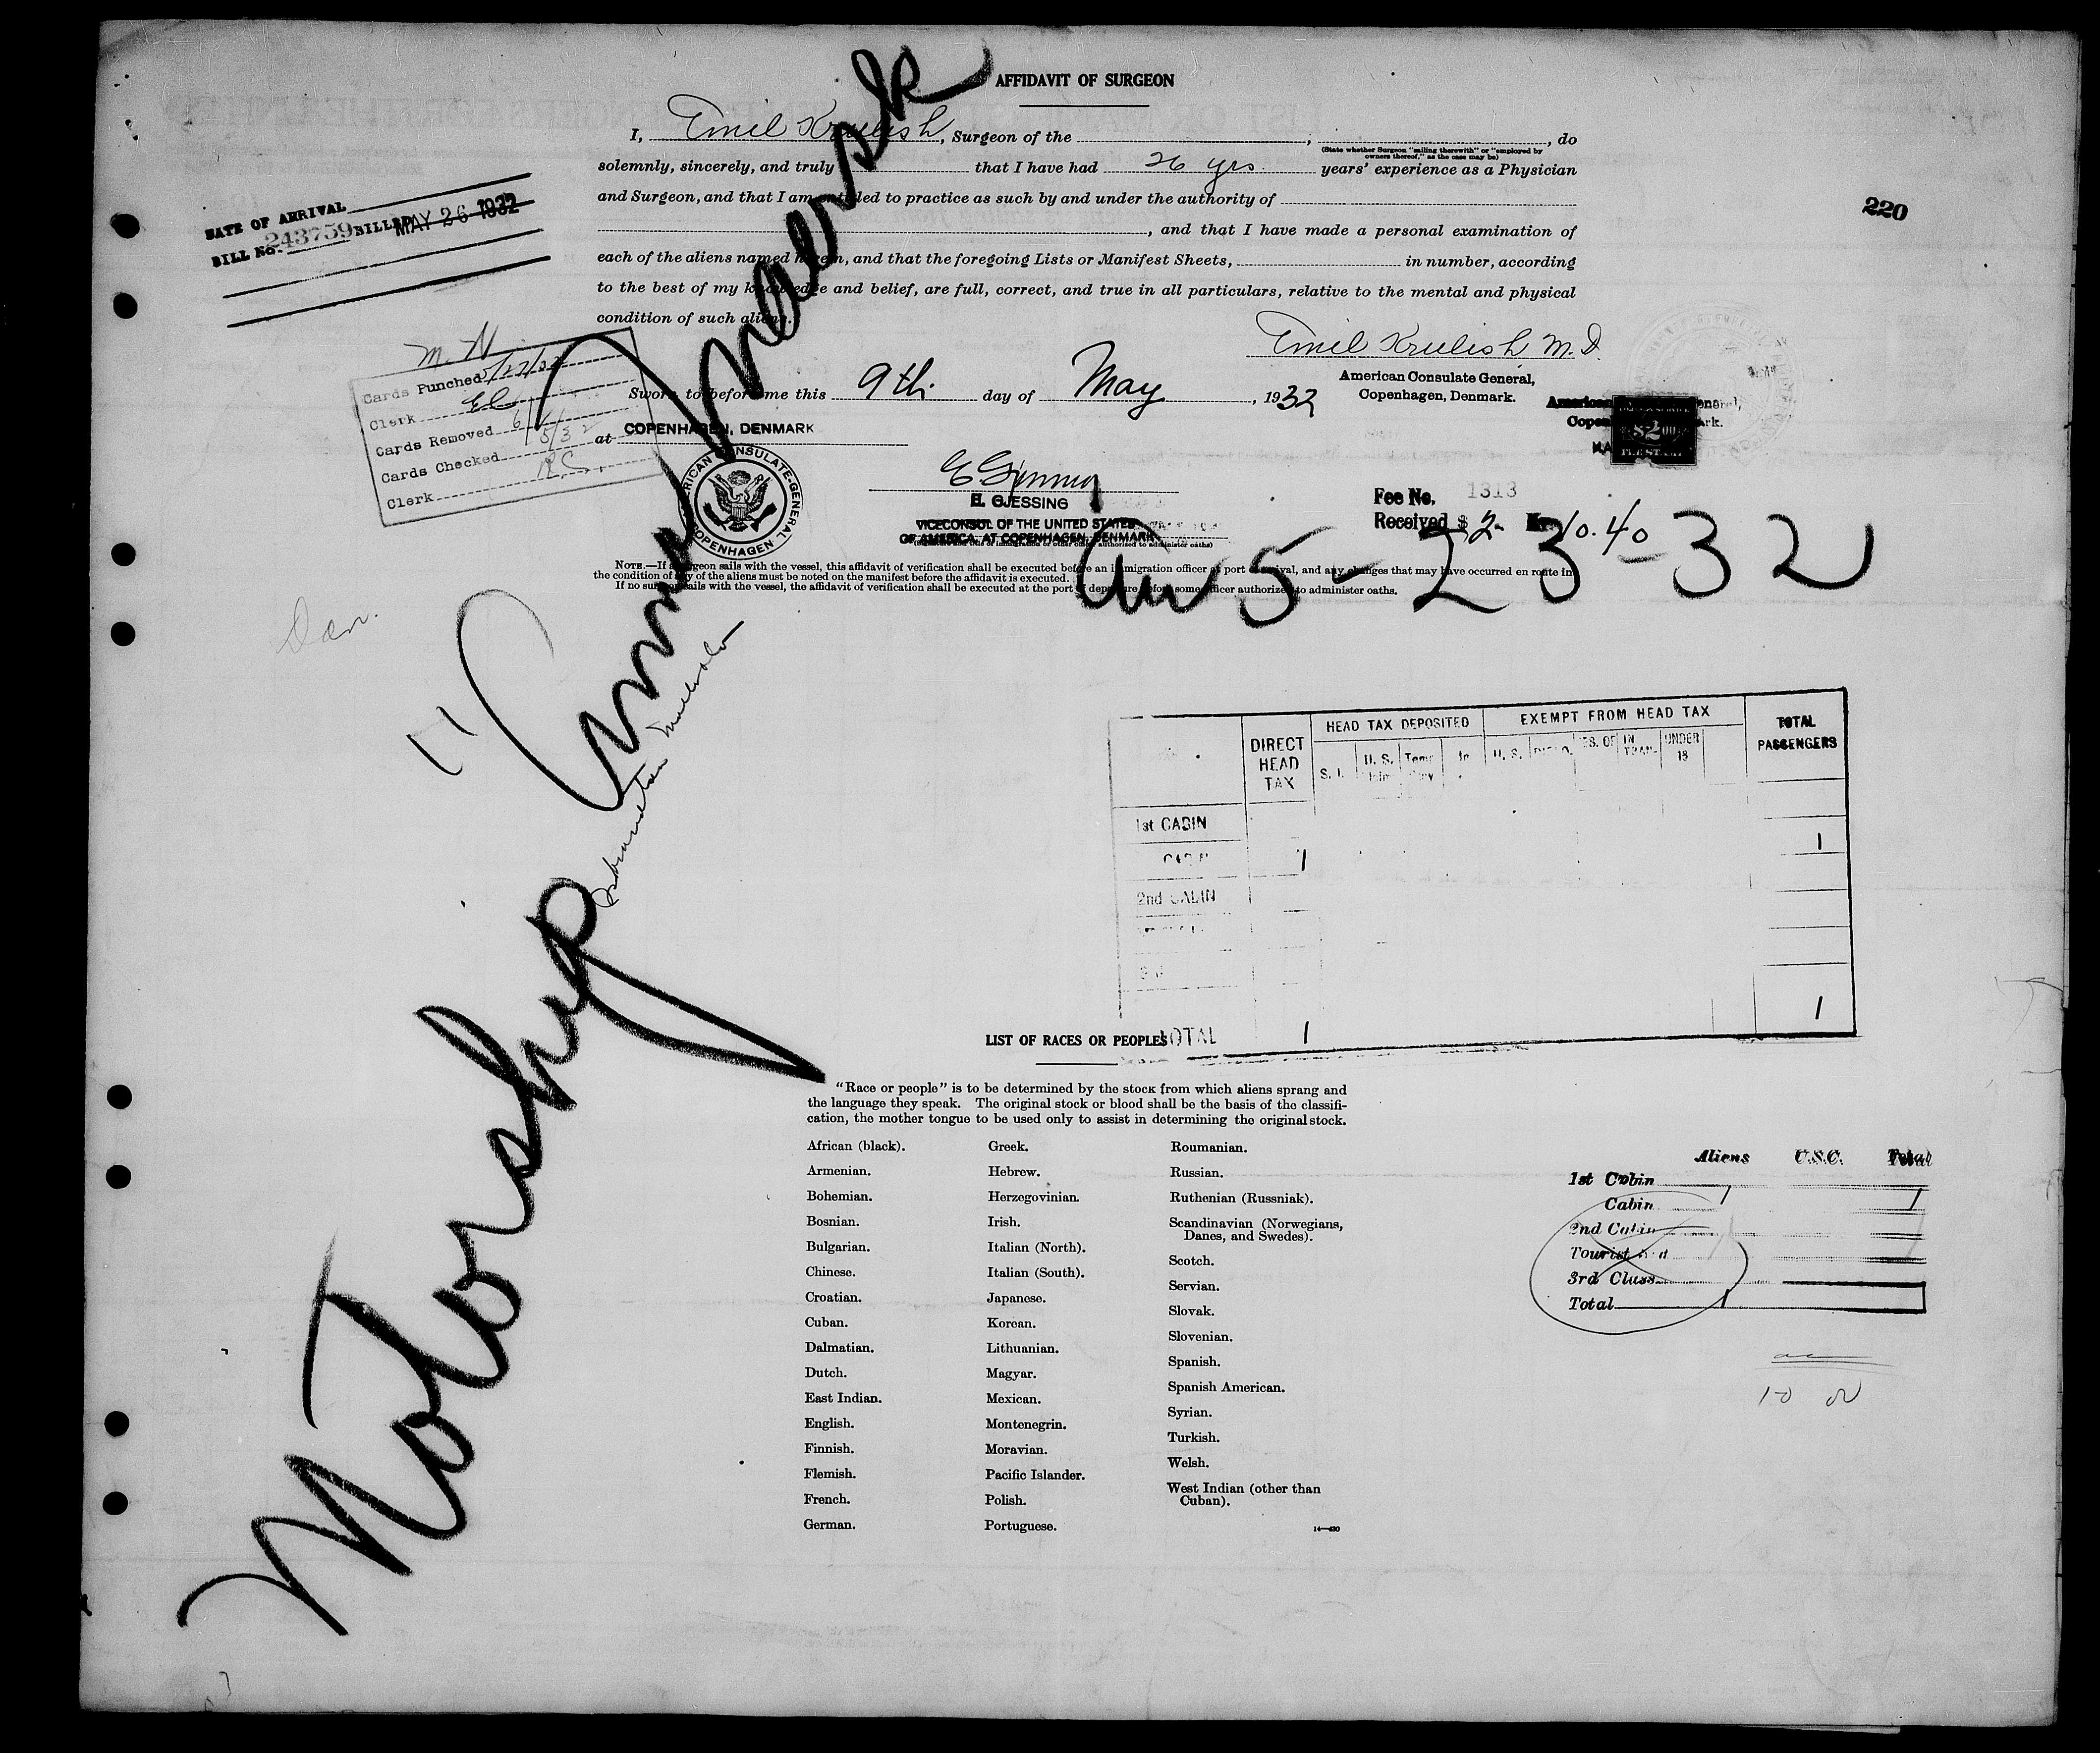 AFFIDAVIT OF SURGEON
I, Emil Krulish, Surgeon of the , , do
(State whether Surgeon "sailing therewith" or "employed by
owners thereof," as the case may be)
solemnly, sincerely, and truly that I have had 26 yrs. years' experience as a Physician
and Surgeon, and that I am entitled to practice as such by and under the authority of
, and that I have made a personal examination of
each of the aliens named herein, and that the foregoing Lists or Manifest Sheets, in number, according
to the best of my knowledge and belief, are full, correct, and true in all particulars, relative to the mental and physical
condition of such aliens.
220
DATE OF ARRIVAL
BILL No. 243759 BILLED MAY 26 1932
Emil Krulish M.D.
American Consulate General,
Copenhagen, Denmark.
$2.00
FEE STAMP
M. N
Cards Punched
Clerk
Cards Removed
Cards Checked
Clerk
Sworn to before me this 9th day of May, 1932
at COPENHAGEN, DENMARK
AMERICAN CONSULATE-GENERAL
COPENHAGEN
H. GJESSING
VICECONSUL OF THE UNITED STATES
OF AMERICA, AT COPENHAGEN, DENMARK
Fee No. 1313
Received $ 2- Kr. 10.40
NOTE.—If a surgeon sails with the vessel, this affidavit of verification shall be executed before an immigration officer at port of arrival, and any changes that may have occurred en route in
the condition of any of the aliens must be noted on the manifest before the affidavit is executed.
If no surgeon sails with the vessel, the affidavit of verification shall be executed at the port of departure before some officer authorized to administer oaths.
Arr 5-23-32
Dan.
Motorship "Anna Maersk"
DIRECT HEAD TAX
HEAD TAX DEPOSITED
EXEMPT FROM HEAD TAX
TOTAL PASSENGERS
S. I.
U. S.
U. S.
IN TRAN-
UNDER 16
1st CABIN
CABIN 1 1
2nd CABIN
TOTAL 1 1
LIST OF RACES OR PEOPLES
"Race or people" is to be determined by the stock from which aliens sprang and
the language they speak. The original stock or blood shall be the basis of the classifi-
cation, the mother tongue to be used only to assist in determining the original stock.
African (black).
Armenian.
Bohemian.
Bosnian.
Bulgarian.
Chinese.
Croatian.
Cuban.
Dalmatian.
Dutch.
East Indian.
English.
Finnish.
Flemish.
French.
German.
Greek.
Hebrew.
Herzegovinian.
Irish.
Italian (North).
Italian (South).
Japanese.
Korean.
Lithuanian.
Magyar.
Mexican.
Montenegrin.
Moravian.
Pacific Islander.
Polish.
Portuguese.
Roumanian.
Russian.
Ruthenian (Russniak).
Scandinavian (Norwegians,
Danes, and Swedes).
Scotch.
Servian.
Slovak.
Slovenian.
Spanish.
Spanish American.
Syrian.
Turkish.
Welsh.
West Indian (other than
Cuban).
14—430
Aliens U.S.C. Total
1st Cabin
Cabin 1 1
2nd Cabin
Tourist 3rd
3rd Class
Total 1